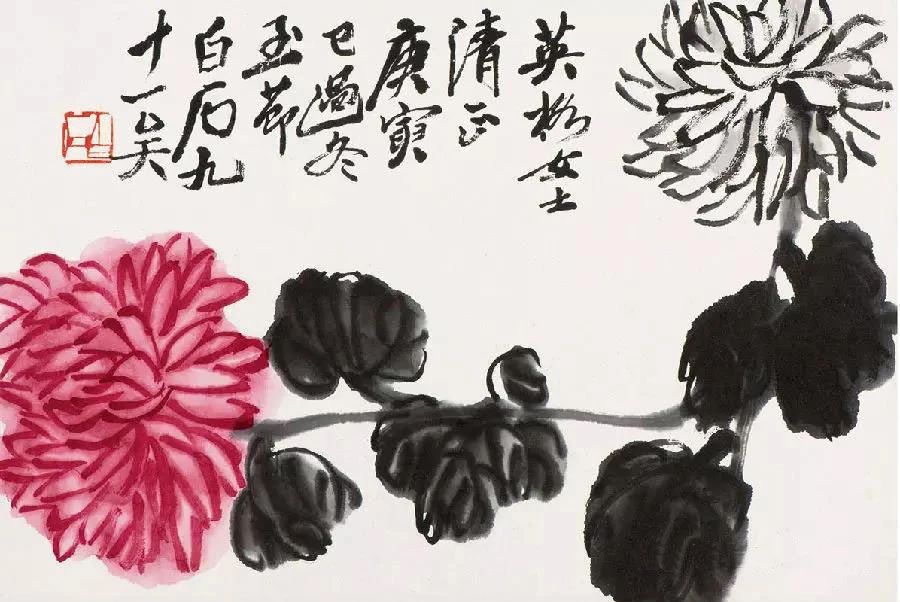 英格女士
清正
庚寅
已過冬
至節
白石九
十一矣